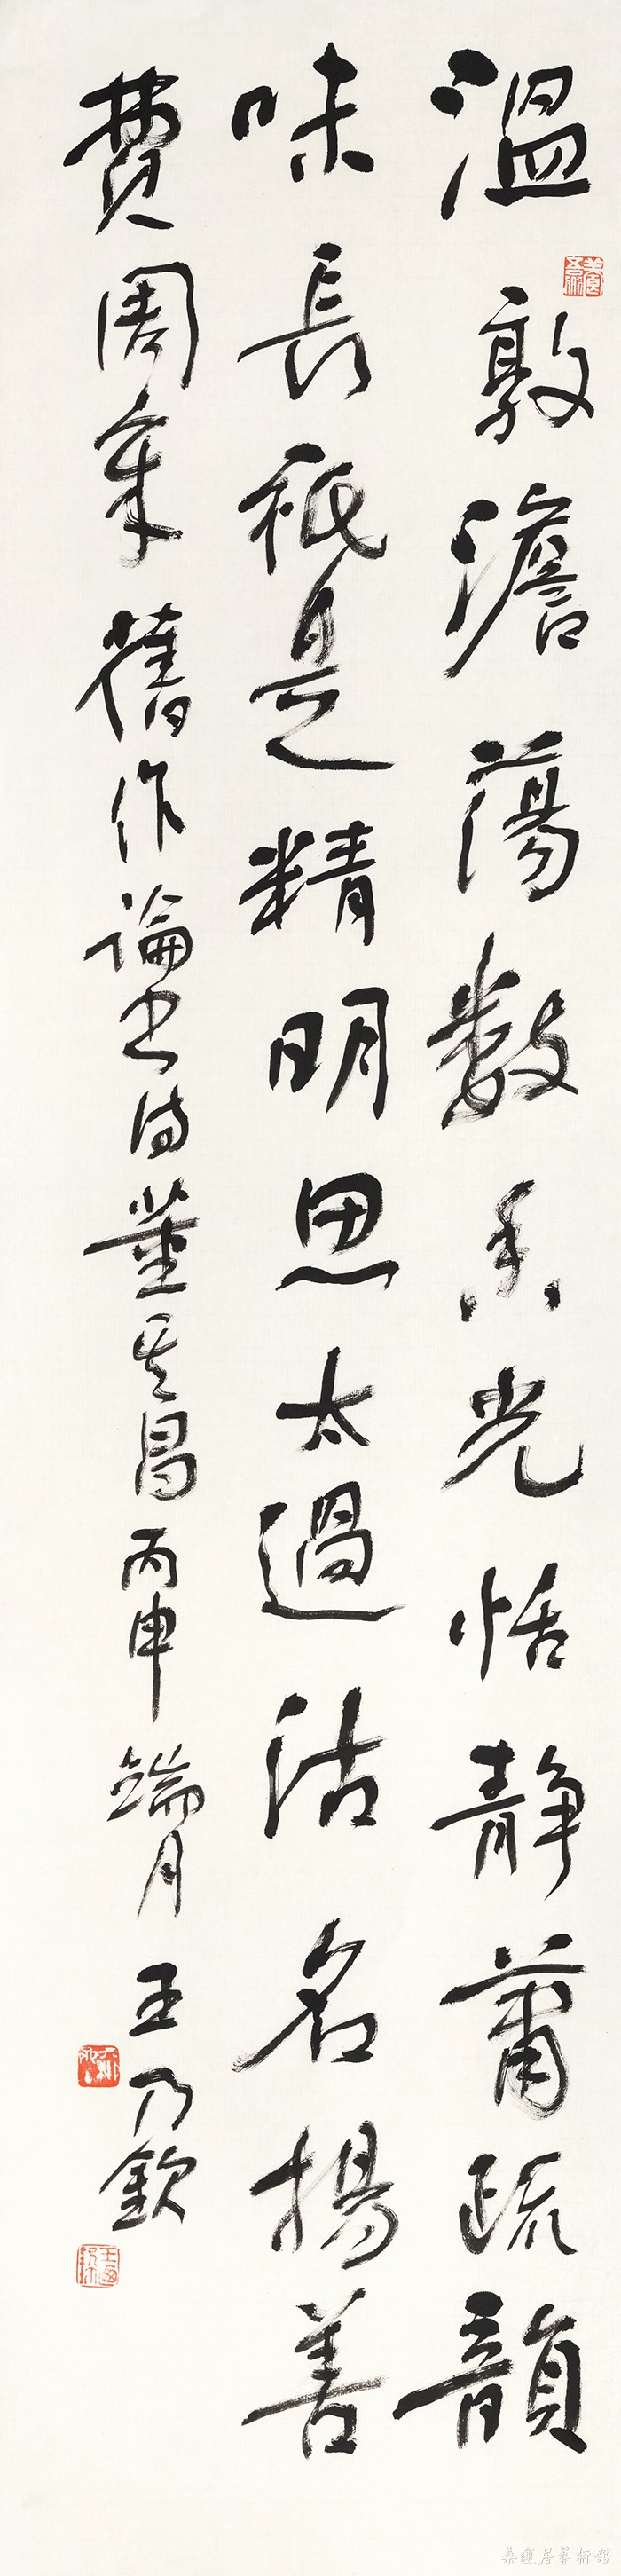 溫敦澹蕩數香光恬靜蕭疏韻
味長祇是精明思太過沽名揚善
費周章舊作論書詩董其昌丙申端月王乃欽